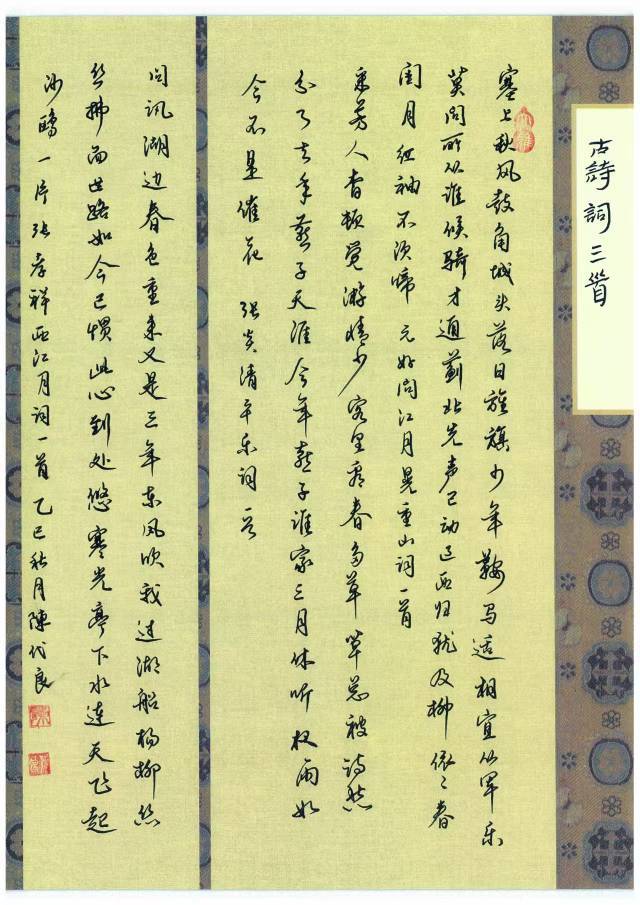 古詩詞三首
塞上秋风鼓角城头落日旌旗少年鞍马适相宜从军乐
莫问所从谁候骑才通蓟北先声已动辽西归犹及柳依〻春
闺月红袖不须啼 元好问江月晃重山词一首
采芳人杳顿觉游情少客里看春多草草总被诗愁
分了去年燕子天涯今年燕子谁家三月休听夜雨如
今不是催花 张炎清平乐词一首
问讯湖边春色重来又是三年东风吹我过湖船杨柳丝
丝拂面世路如今已惯此心到处悠寒光亭下水连天飞起
沙鸥一片张孝祥西江月词一首 乙巳秋月陈代良